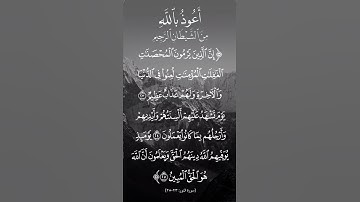 أَعُوذُ بِٱللَّهِ
مِنَ ٱلشَّيْطَانِ ٱلرَّجِيمِ
﴿إِنَّ ٱلَّذِينَ يَرْمُونَ ٱلْمُحْصَنَٰتِ
ٱلْغَٰفِلَٰتِ ٱلْمُؤْمِنَٰتِ لُعِنُوا۟ فِى ٱلدُّنْيَا
وَٱلْءَاخِرَةِ وَلَهُمْ عَذَابٌ عَظِيمٌ ﴿٢٣﴾
يَوْمَ تَشْهَدُ عَلَيْهِمْ أَلْسِنَتُهُمْ وَأَيْدِيهِمْ
وَأَرْجُلُهُم بِمَا كَانُوا۟ يَعْمَلُونَ ﴿٢٤﴾ يَوْمَئِذٍ
يُوَفِّيهِمُ ٱللَّهُ دِينَهُمُ ٱلْحَقَّ وَيَعْلَمُونَ أَنَّ ٱللَّهَ
هُوَ ٱلْحَقُّ ٱلْمُبِينُ ﴿٢٥﴾﴾
[سورة النور: ٢٣-٢٥]